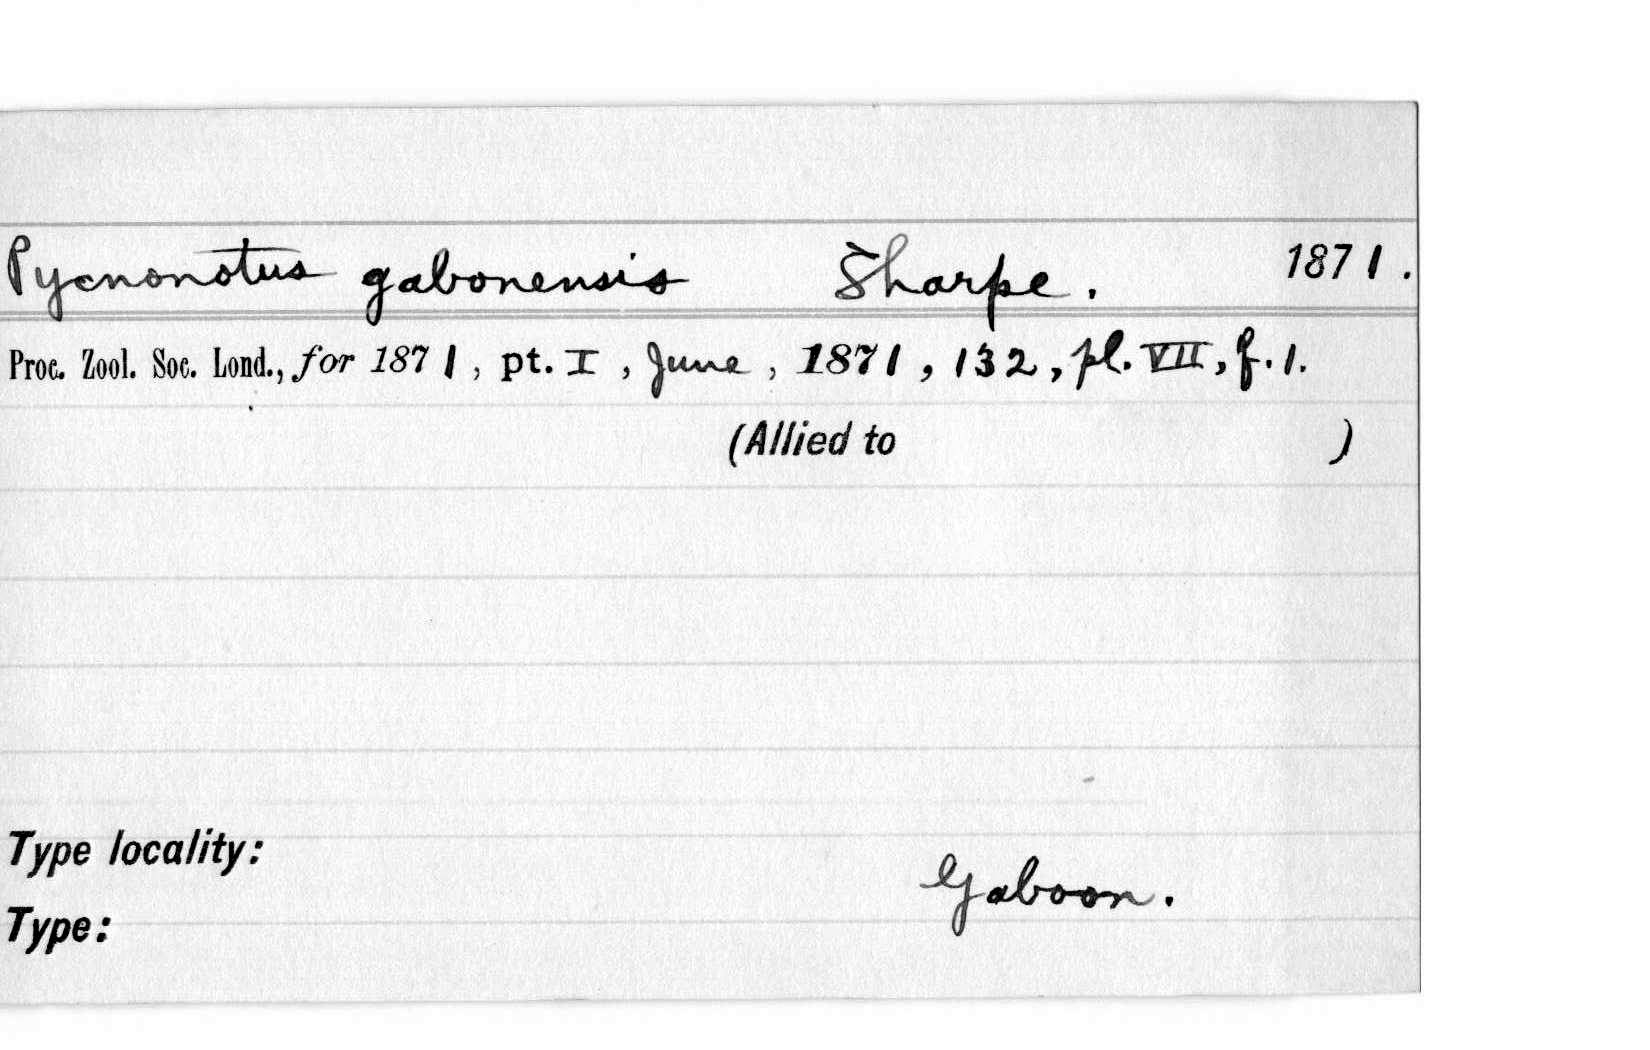 Pycnonotus gabonensis Sharpe. 1871.
Proc. Zool. Soc. Lond., for 1871, pt. I, June, 1871, 132, pl. VII, f. 1.
(Allied to )
Type locality:
Gaboon.
Type: